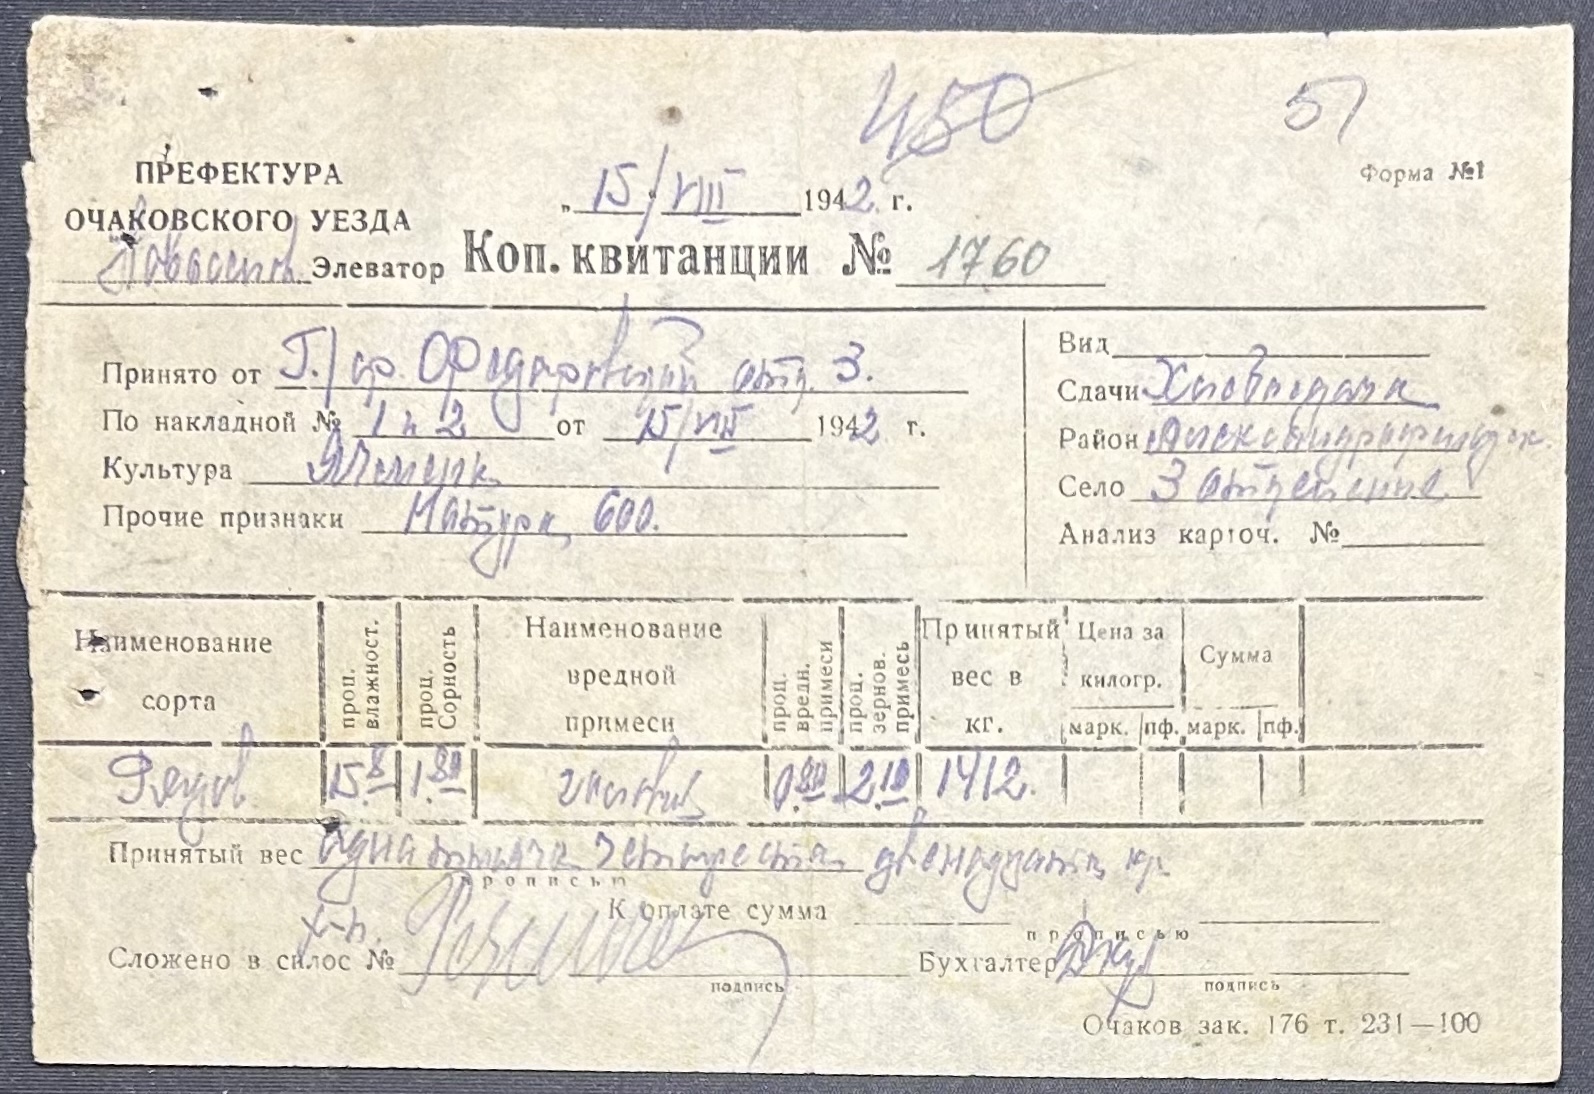 450 51
Форма №1
ПРЕФЕКТУРА
ОЧАКОВСКОГО УЕЗДА
„ 15 / VIII 1942 г.
Элеватор Коп. квитанции № 1760
Принято от отд. 3.
По накладной № 1 и 2 от 15/VIII 1942 г.
Культура Ячмень
Прочие признаки Натура 600.
Вид
Сдачи Хлебосдача
Район
Село 3 отделение
Анализ карточ. №
Наименование сорта
проц. влажност.
проц. Сорность
Наименование вредной примеси
проц. вредн. примеси
проц. зернов. примесь
Принятый вес в кг.
Цена за килогр.
марк. пф.
Сумма
марк. пф.
Рядов 15.8 1.80 0.80 2.10 1412.
Принятый вес одна тысяча четыреста двенадцать кг.
прописью
К оплате сумма
прописью
Сложено в силос №
подпись
Бухгалтер
подпись
Очаков зак. 176 т. 231—100